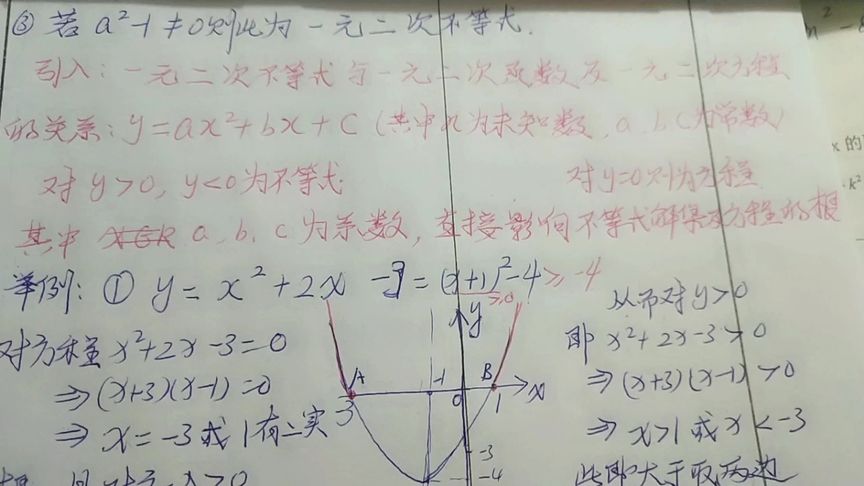 ③ 若 a²-1≠0则此为一元二次不等式.
引入:一元二次不等式与一元二次函数及一元二次方程
的关系:y=ax²+bx+c (其中x为未知数,a.b.c为常数)
对 y>0, y<0为不等式 对y=0则为方程
其中 a、b、c 为系数,直接影响不等式解集及方程的根
举例:① y= x²+2x -3=(x+1)²-4≥-4
≥0
对方程 x²+2x-3=0
⇒(x+3)(x-1)=0
⇒ x=-3或1有二实
y
A
-1
B
3
0
1
x
-3
-4
从而对y>0
即 x²+2x-3>0
⇒(x+3)(x-1)>0
⇒x>1或x<-3
此即大于取两边
x 的
k²